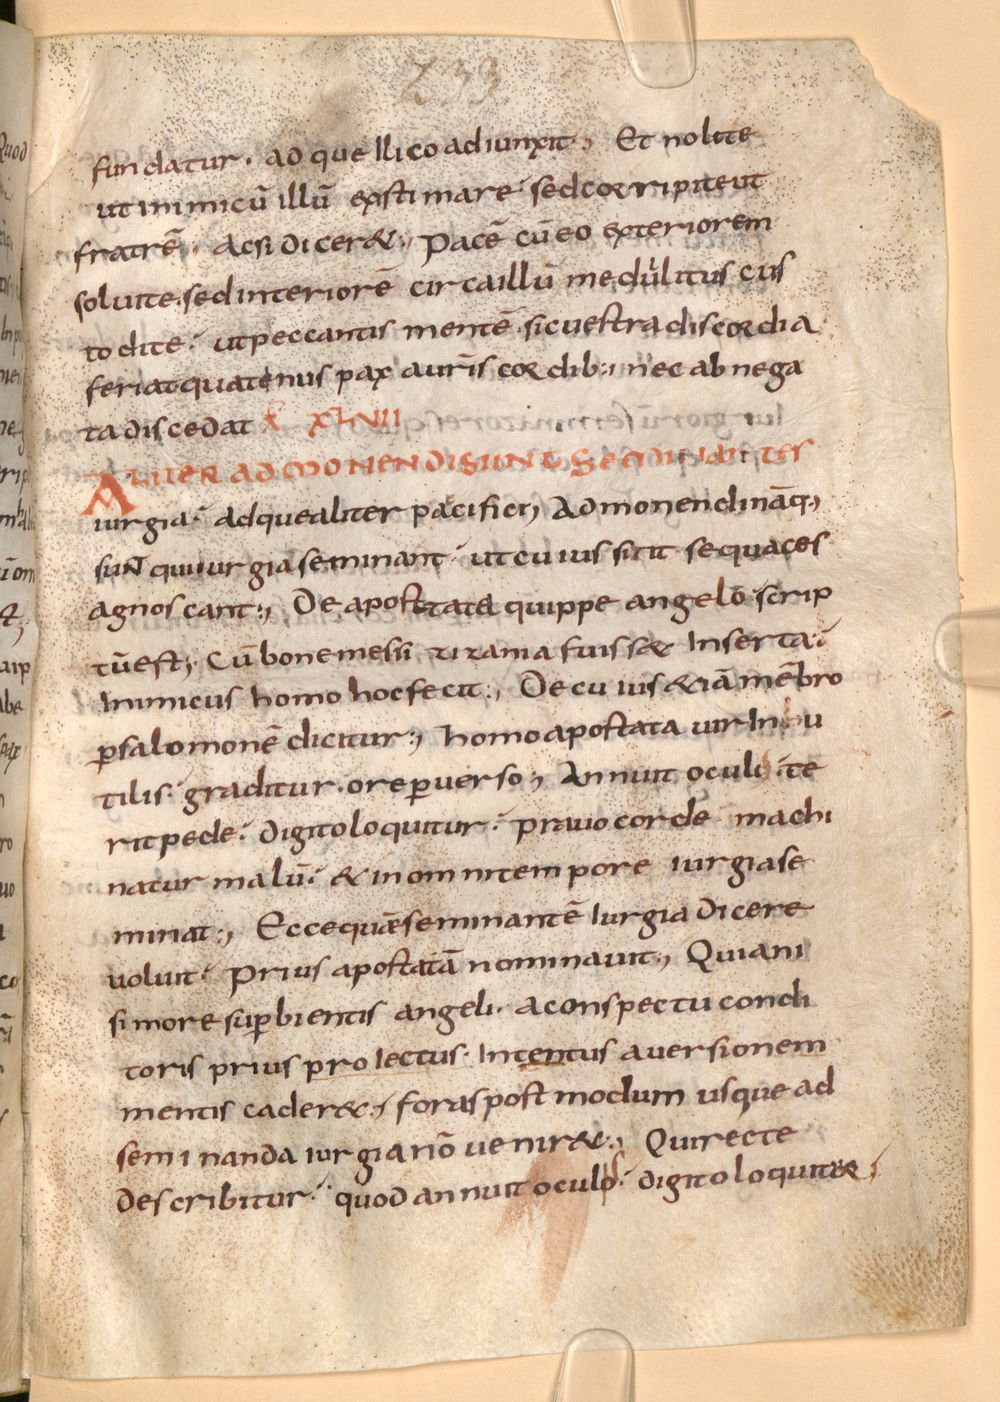 233.
fundatur. adque llico adiunxit; Et nolite
ut inimicū illū exstimare sed corripite ut
fratrē. Acsi dicer&; Pacē cū eo exteriorem
soluite. sed interiorē circa illū medullitus cus
todite. ut peccantis mentē sic uestra discordia
feriat quatenus pax a uris cordib; nec abnega
ta discedat X XLVII
ALITER ADMONENDI SUNT SEMINANTES
iurgia. adque aliter pacifici; Admonendi nāq;
suNT qui iurgia seminant. ut cuius sint sequaces
agnoscant; De apostata quippe angelo scrip
tū est; Cū bone messi zizania fuiss& Inserta.
Inimicus homo hoc fecit; De cuius &iā mēbro
p salomonē dicitur; homo apostata uir Inu
tilis. graditur. ore puerso; Annuit oculi. te
rit pede. digito loquitur. prauo corde machi
natur malū. & in omni tempore iurgia se
minat; Ecce quē seminantē Iurgia dicere
uoluit. Prius apostatā nominauit; Quia ni
si more supbientis angeli. a conspectu condi
toris prius proIectus. Intentus auersionem
mentis cader&; foras postmodum usque ad
seminanda iurgia nō uenir&; Qui recte
describitur. quod annuit oculis. digito loquit&;